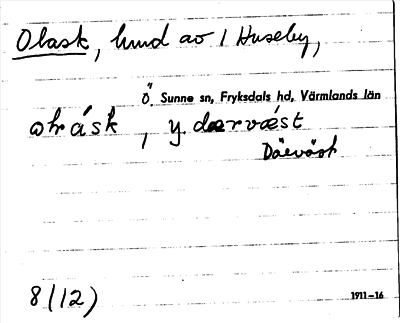 Olask, hmd av 1 Huseby,
Ö. Sunne sn, Fryksdals hd, Värmlands län
ωhrásk, y dærvǽst
Däeväst
8(12)
1911–16